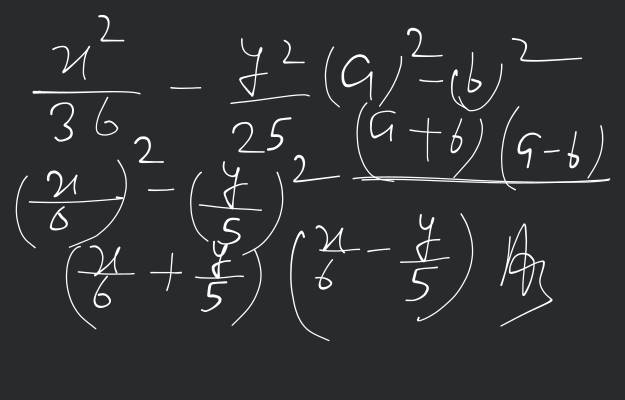 x²/36 - y²/25 (a)² - (b)²
(a+b)(a-b)
(x/6)² - (y/5)²
(x/6 + y/5) (x/6 - y/5) Ans